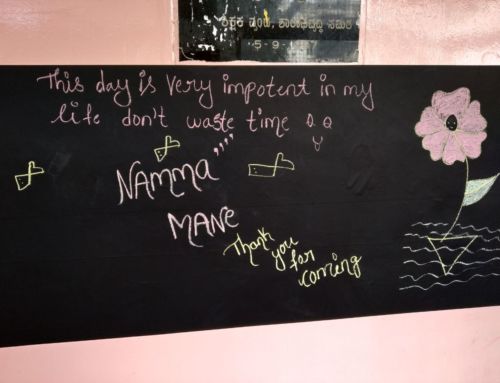 5-9-
This day is Very impotent in my
life don't waste time
NAMMA ''''
MANe
Thank
you
for
coming